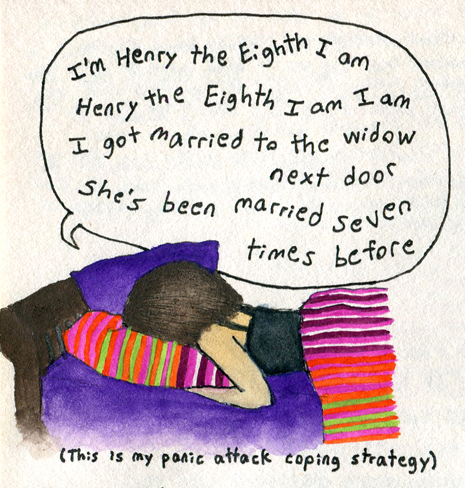 I'm Henry the Eighth I am
Henry the Eighth I am I am
I got married to the widow
next door
she's been married seven
times before
(This is my panic attack coping strategy)